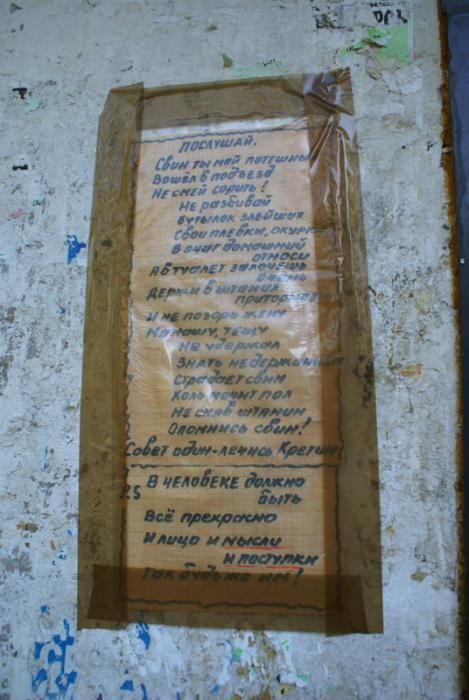 ПОСЛУШАЙ.
Свин ты мой потешный
Вошёл в подъезд
Не смей сорить!
Не разбивай
Бутылок злейших
Свои плевки, окурки
В очаг домашний
относи
А в туалет захочешь
очень
Держи в штанах
притормози
И не позорь жену
Мамашу, тёщу
Не удержал
Знать недержанием
Страдает свин
Коль мочит пол
Не сняв штанин
Опомнись свин!
Совет один-лечись Кретин!
P.S В человеке должно
быть
Всё прекрасно
И лицо и мысли
и поступки
Так будь же им!